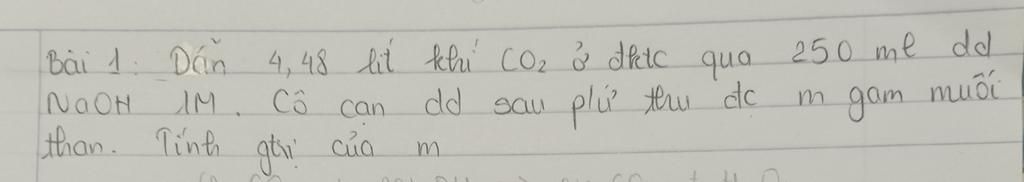 Bài 1: Dẫn 4,48 lít khí CO2 ở đktc qua 250 ml dd
NaOH 1M. Cô cạn dd sau pứ thu đc m gam muối
than. Tính gtrị của m